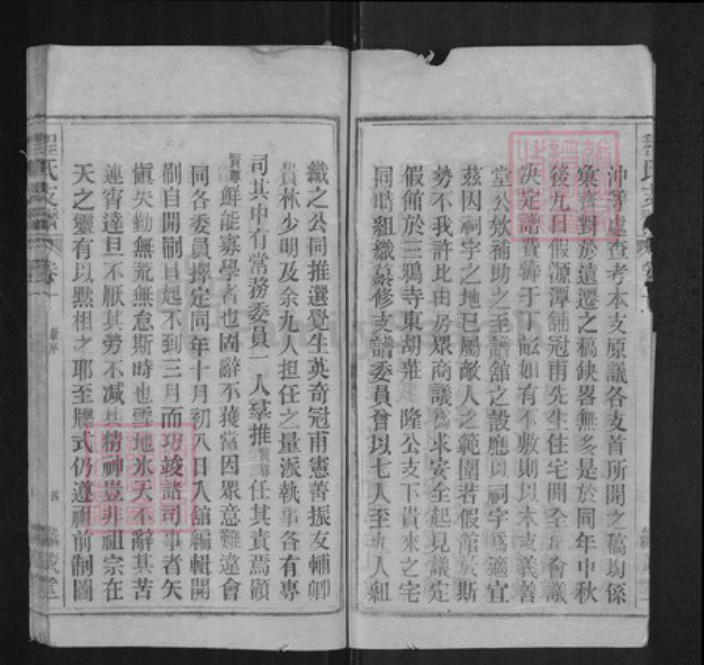 沖等處查考本支原議各支首所開之稿均係
彙齊對於遠遷之稿缺畧無多是於同年中秋
後九日假源潭舖冠甫先生住宅開全支會議
決定譜費籌于丁畝如有不敷則以本支義善
堂公欵補助之至譜舘之設應以祠宇為適宜
茲因祠宇之地已屬敵人之範圍若假舘於斯
勢不我許比由房眾商議為求安全起見議定
假舘於三鴉寺東胡莊 隆公支下貴來之宅
同時組織纂修支譜委員會以七人至九人組
織之公同推選覺生英奇冠甫憲善振友輔卿
貴林少明及余九人担任之量派執事各有專
司其中有常務委員一人羣推賢尊任其責焉顧
賢尊鮮能寡學者也固辭不獲當因眾意難違會
同各委員擇定同年十月初八日入舘編輯開
剞自開剞日起不到三月而功竣諸司事者矢
慎矢勤無荒無怠斯時也雪地氷天不辭其苦
連宵達旦不厭其勞不減其精神豈非祖宗在
天之靈有以默相之耶至牒式仍遵祖前制圖
氏支譜